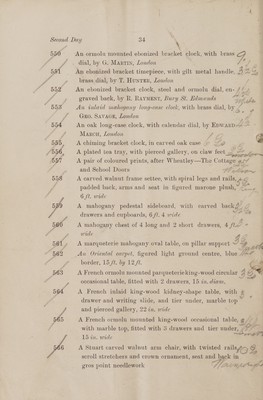 Second Day 34
550 An ormolu mounted ebonized bracket clock, with brass
dial, by G. MARTIN, London
551 An ebonized bracket timepiece, with gilt metal handle,
brass dial, by T. HUNTER, London
552 An ebonized bracket clock, steel and ormolu dial, en-
graved back, by R. RAYMENT, Bury St. Edmunds
553 An inlaid mahogany long-case clock, with brass dial, by
GEO. SAVAGE, London
554 An oak long-case clock, with calendar dial, by EDWARD
MARCH, London
555 A chiming bracket clock, in carved oak case
556 A plated tea tray, with pierced gallery, on claw feet
557 A pair of coloured prints, after Wheatley—The Cottage
and School Doors
558 A carved walnut frame settee, with spiral legs and rails,
padded back, arms and seat in figured marone plush,
6 ft. wide
559 A mahogany pedestal sideboard, with carved back,
drawers and cupboards, 6 ft. 4 wide
560 A mahogany chest of 4 long and 2 short drawers, 4 ft.
wide
561 A marqueterie mahogany oval table, on pillar support
562 An Oriental carpet, figured light ground centre, blue
border, 15 ft. by 12 ft.
563 A French ormolu mounted parqueterie king-wood circular
occasional table, fitted with 2 drawers, 15 in. diam.
564 A French inlaid king-wood kidney-shape table, with
drawer and writing slide, and tier under, marble top
and pierced gallery, 22 in. wide
565 A French ormolu mounted king-wood occasional table,
with marble top, fitted with 3 drawers and tier under,
15 in. wide
566 A Stuart carved walnut arm chair, with twisted rails,
scroll stretchers and crown ornament, seat and back in
gros point needlework